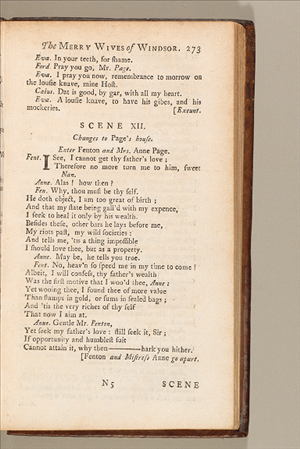 The MERRY WIVES of WINDSOR. 273
Eva. In your teeth, for ſhame.
Ford. Pray you go, Mr. Page.
Eva. I pray you now, remembrance to morrow on
the louſie knave, mine Hoſt.
Caius. Dat is good, by gar, with all my heart.
Eva. A louſie knave, to have his gibes, and his
mockeries. [Exeunt.
SCENE XII.
Changes to Page's houſe.
Enter Fenton and Mrs. Anne Page.
Fent. I See, I cannot get thy father's love;
Therefore no more turn me to him, ſweet
Nan.
Anne. Alas! how then?
Fen. Why, thou muſt be thy ſelf.
He doth object, I am too great of birth;
And that my ſtate being gall'd with my expence,
I ſeek to heal it only by his wealth.
Beſides theſe, other bars he lays before me,
My riots paſt, my wild ſocieties:
And tells me, 'tis a thing impoſſible
I ſhould love thee, but as a property.
Anne. May be, he tells you true.
Fent. No, heav'n ſo ſpeed me in my time to come!
Albeit, I will confeſs, thy father's wealth
Was the firſt motive that I woo'd thee, Anne:
Yet wooing thee, I found thee of more value
Than ſtamps in gold, or ſums in ſealed bags;
And 'tis the very riches of thy ſelf
That now I aim at.
Anne. Gentle Mr. Fenton,
Yet ſeek my father's love: ſtill ſeek it, Sir;
If opportunity and humbleſt ſuit
Cannot attain it, why then———hark you hither.
[Fenton and Miſtreſs Anne go apart.
N5 SCENE